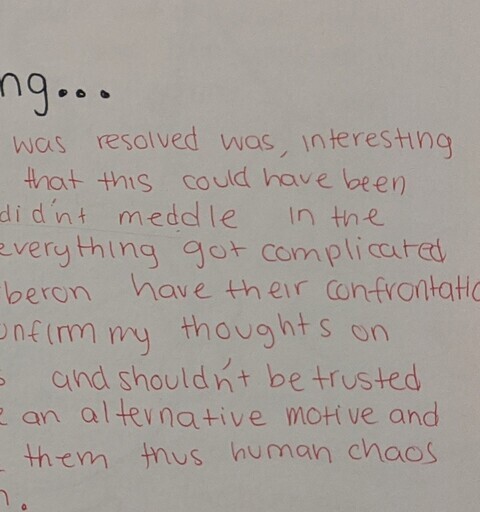 ng...
was resolved was, interesting
that this could have been
did'nt meddle in the
everything got complicated
beron have their confrontatio
onfirm my thoughts on
and shouldn't be trusted
an alternative motive and
them thus human chaos